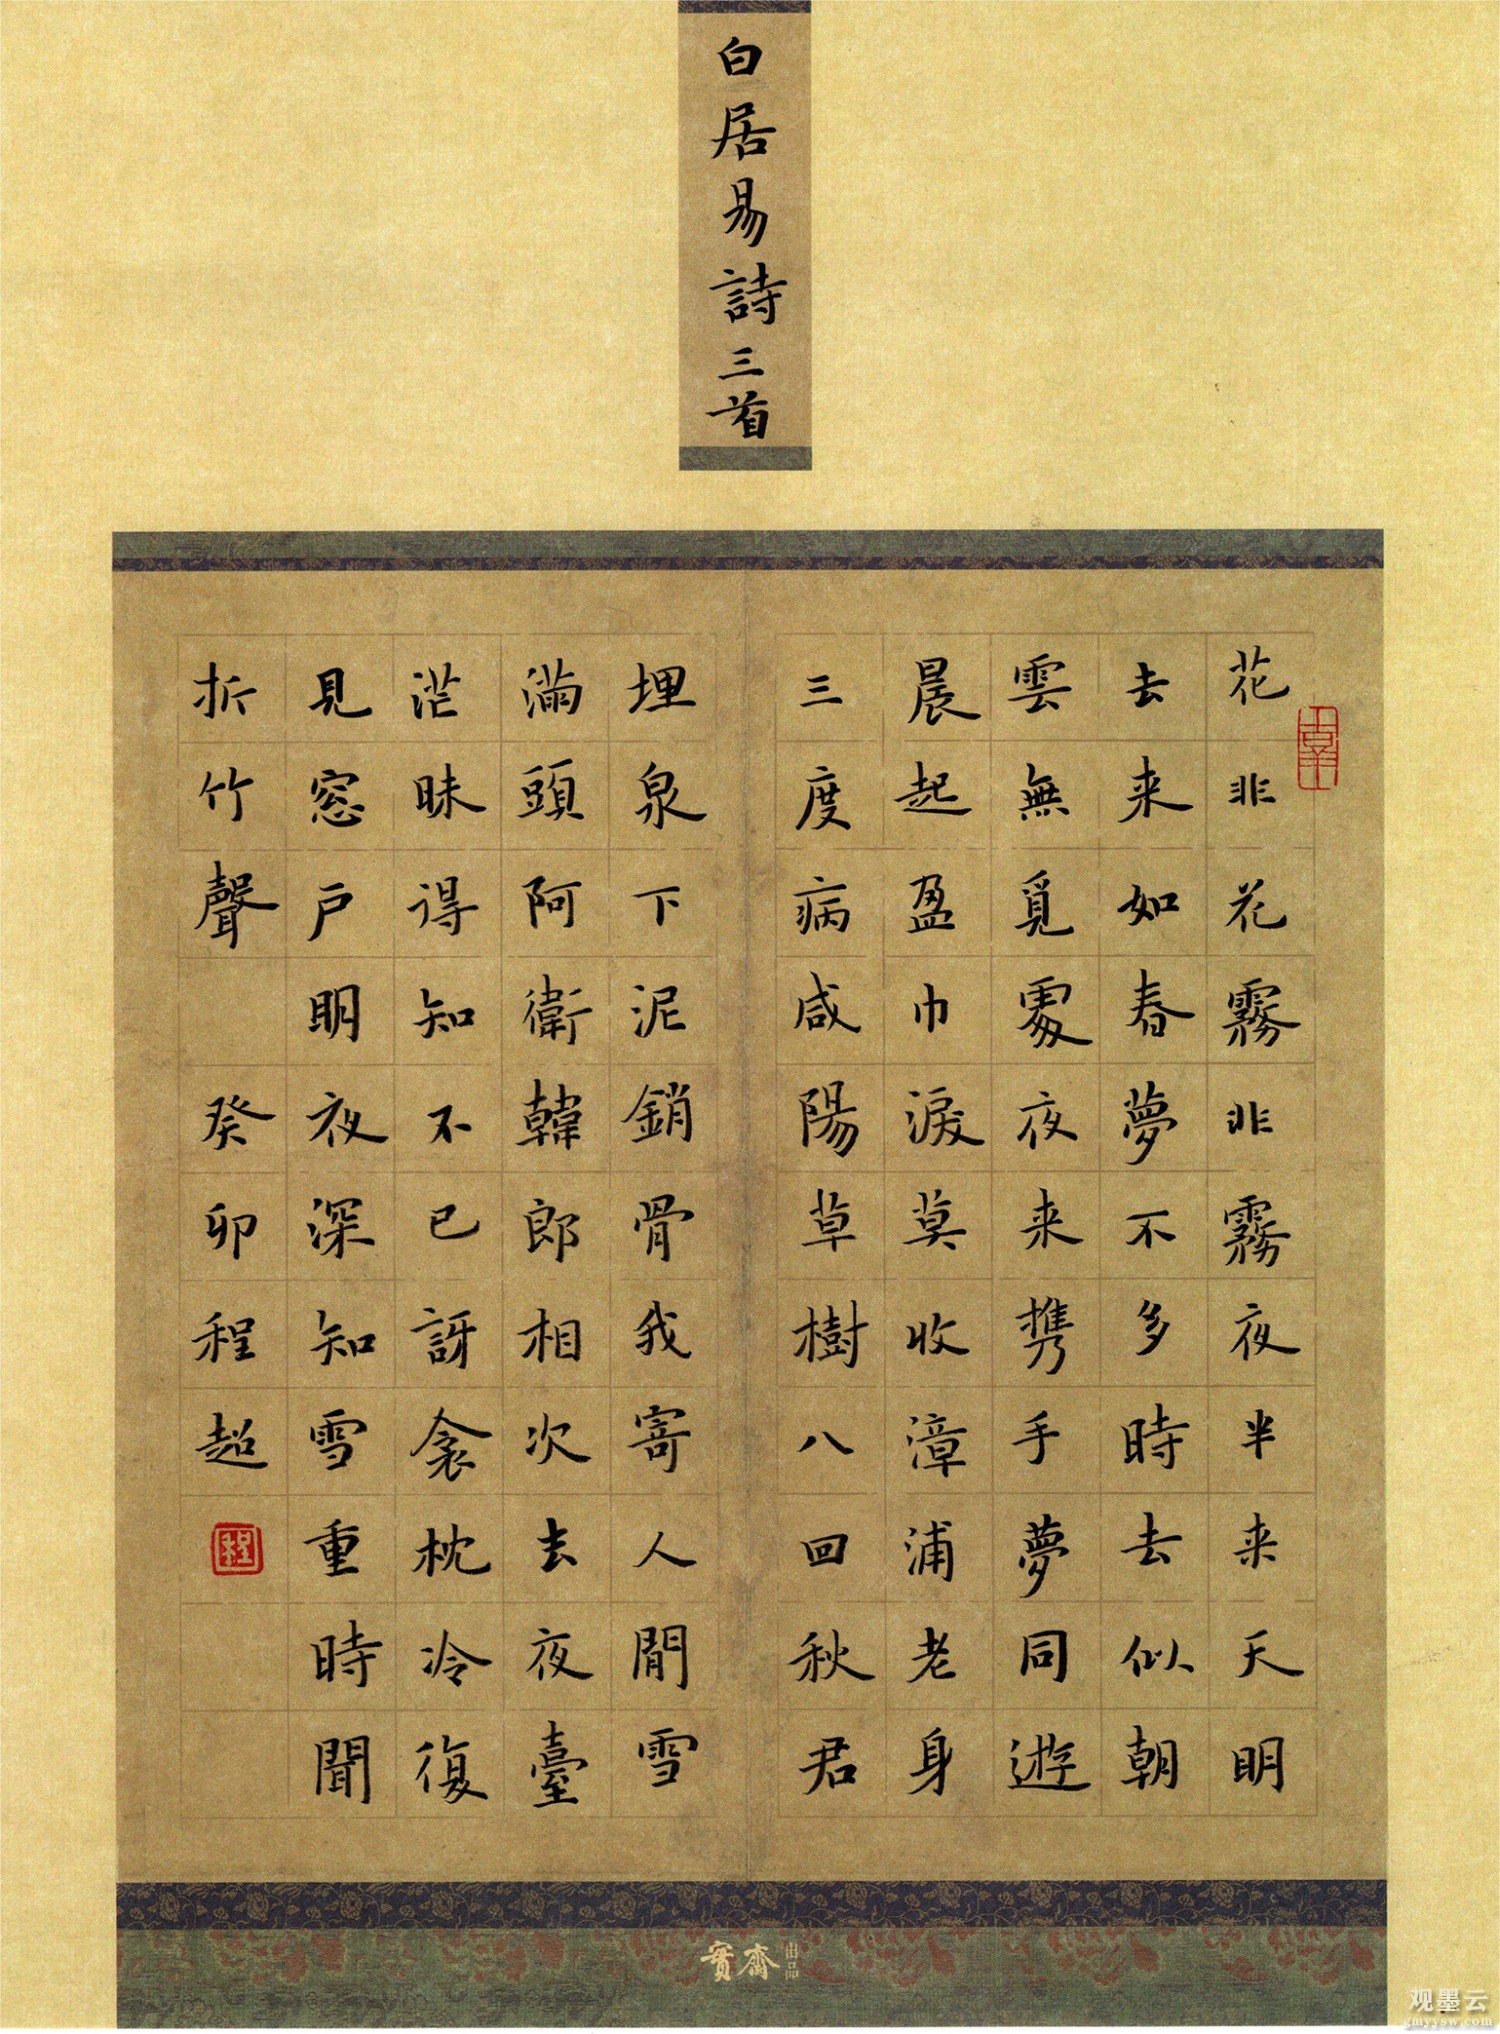 白居易詩三首
花非花霧非霧夜半来天明
去来如春夢不多時去似朝
雲無覓處夜来携手夢同遊
晨起盈巾淚莫收漳浦老身
三度病咸陽草樹八回秋君
埋泉下泥銷骨我寄人間雪
滿頭阿衛韓郎相次去夜臺
茫昧得知不已訝衾枕冷復
見窓戶明夜深知雪重時聞
折竹聲 癸卯程超
程
實齋
出品
观墨云
gmyysw.com